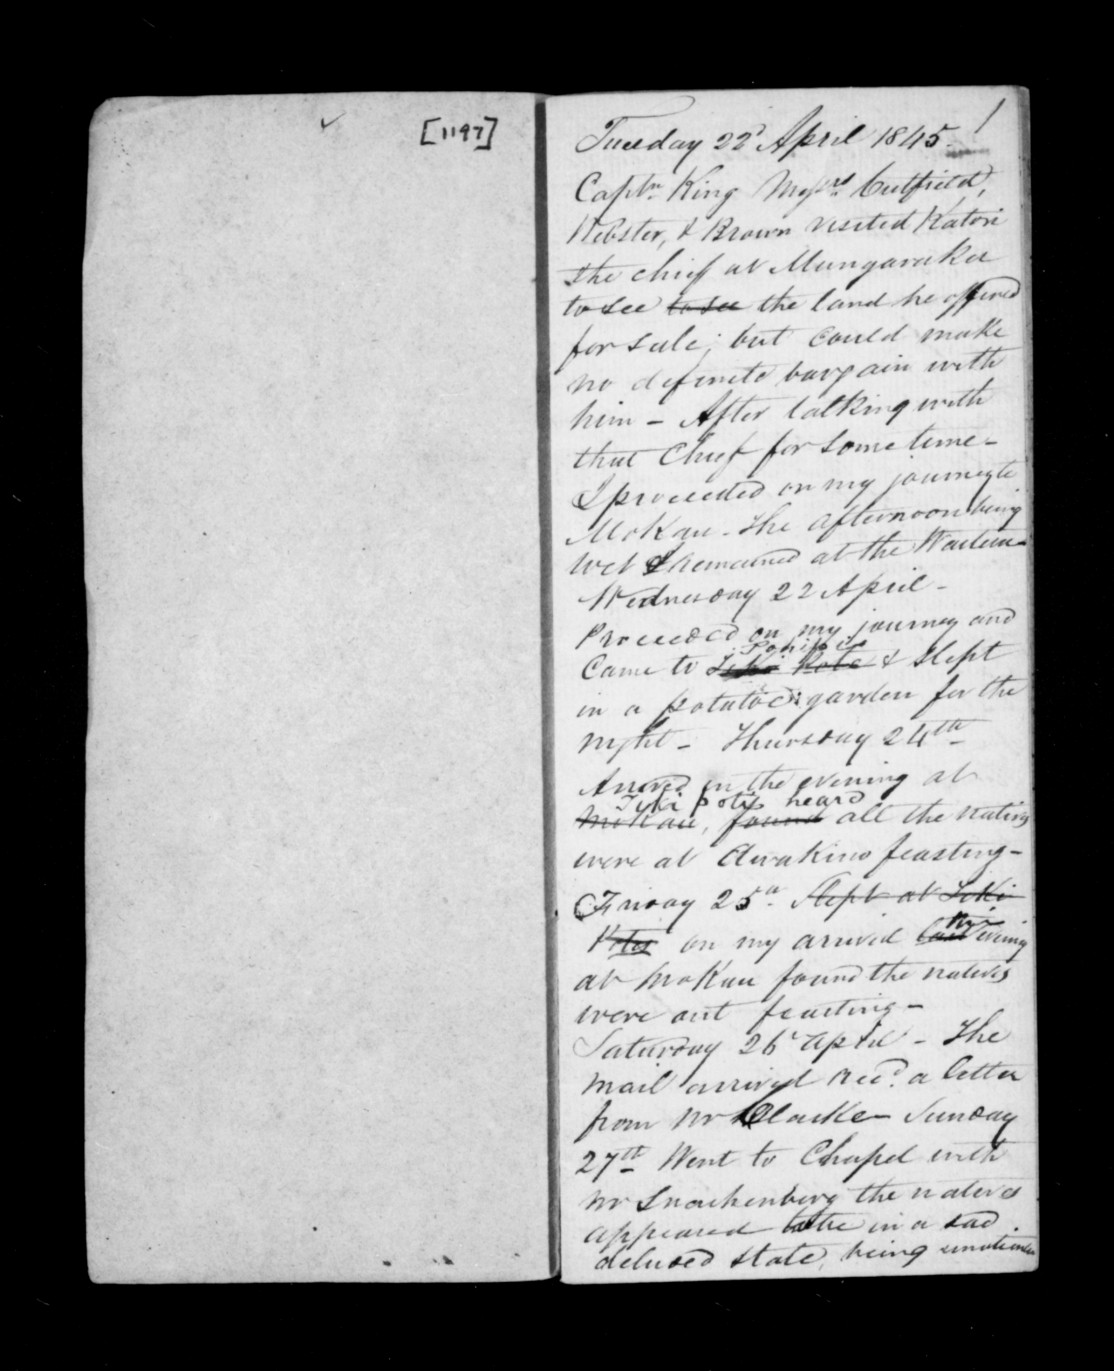 [1197]
1
Tuesday 22d April 1845
Captn. King Messrs Cutfield,
Webster, & Brown visited Katori
the chief at Mungaraka
to see to see the land he offered
for sale; but could make
no definite bargain with
him - After talking with
that Chief for some time -
I proceeded on my journey to
MoKau - The afternoon being
wet I remained at the
Wednesday 22 April -
Proceeded on my journey and
Came to Teki Kote & slept
in a potatoe garden for the
night - Thursday 24th -
Arrived in the evening at
Tiki potis heard
MoKau, found all the natives
were at Awakino feasting -
Friday 25th. Slept at Teki
Kotes on my arrival last evening
at MoKau found the natives
were out feasting -
Saturday 26t April - The
Mail arrived recd. a letter
from Mr Clarke - Sunday
27th Went to Chapel with
Mr Snackenberg the natives
appeared to be in a sad
deluded state, being